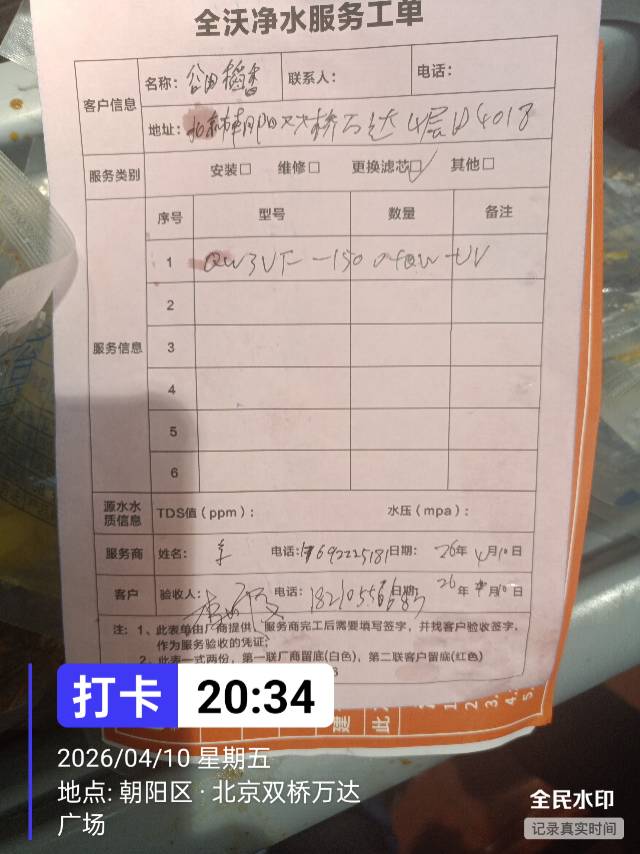 全沃净水服务工单
客户信息
名称: 谷田稻香
联系人:
电话:
地址: 北京市朝阳双桥万达4层D4013
服务类别
安装□ 维修□ 更换滤芯☑ 其他□
服务信息
序号 型号 数量 备注
1
2
3
4
5
6
源水水质信息
TDS值（ppm）: 水压（mpa）:
服务商 姓名: 电话: 日期: 26年4月10日
客户 验收人: 电话: 日期: 26年 月10日
注: 1、此表单由厂商提供，服务商完工后需要填写签字，并找客户验收签字，
作为服务验收的凭证;
2、此表一式两份，第一联厂商留底(白色)，第二联客户留底(红色)
建
此
1
2.
3.
4.
5.
打卡 20:34
2026/04/10 星期五
地点: 朝阳区 · 北京双桥万达
广场
全民水印
记录真实时间